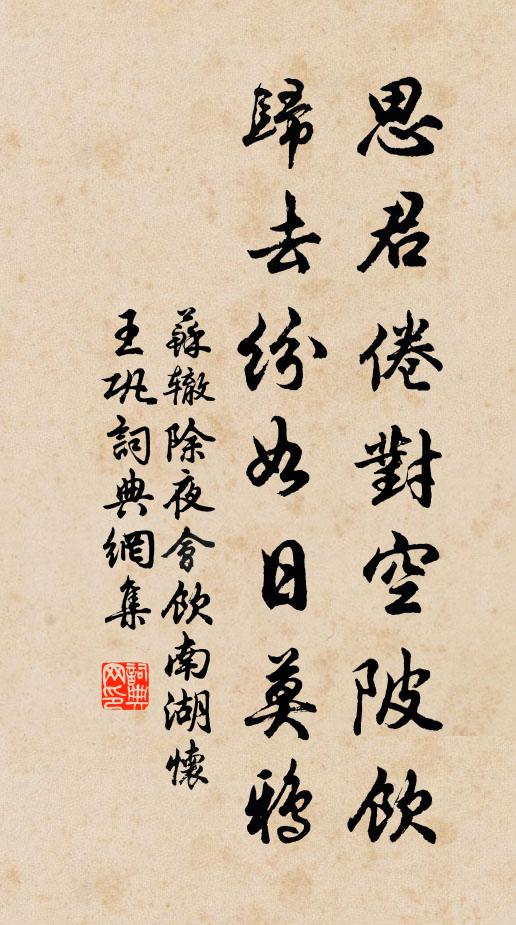 思君倦對空陂飲
歸去紛如日莫鴉
蘇轍除夜會飲南湖懷
王巩詞典網集
詞典
网印